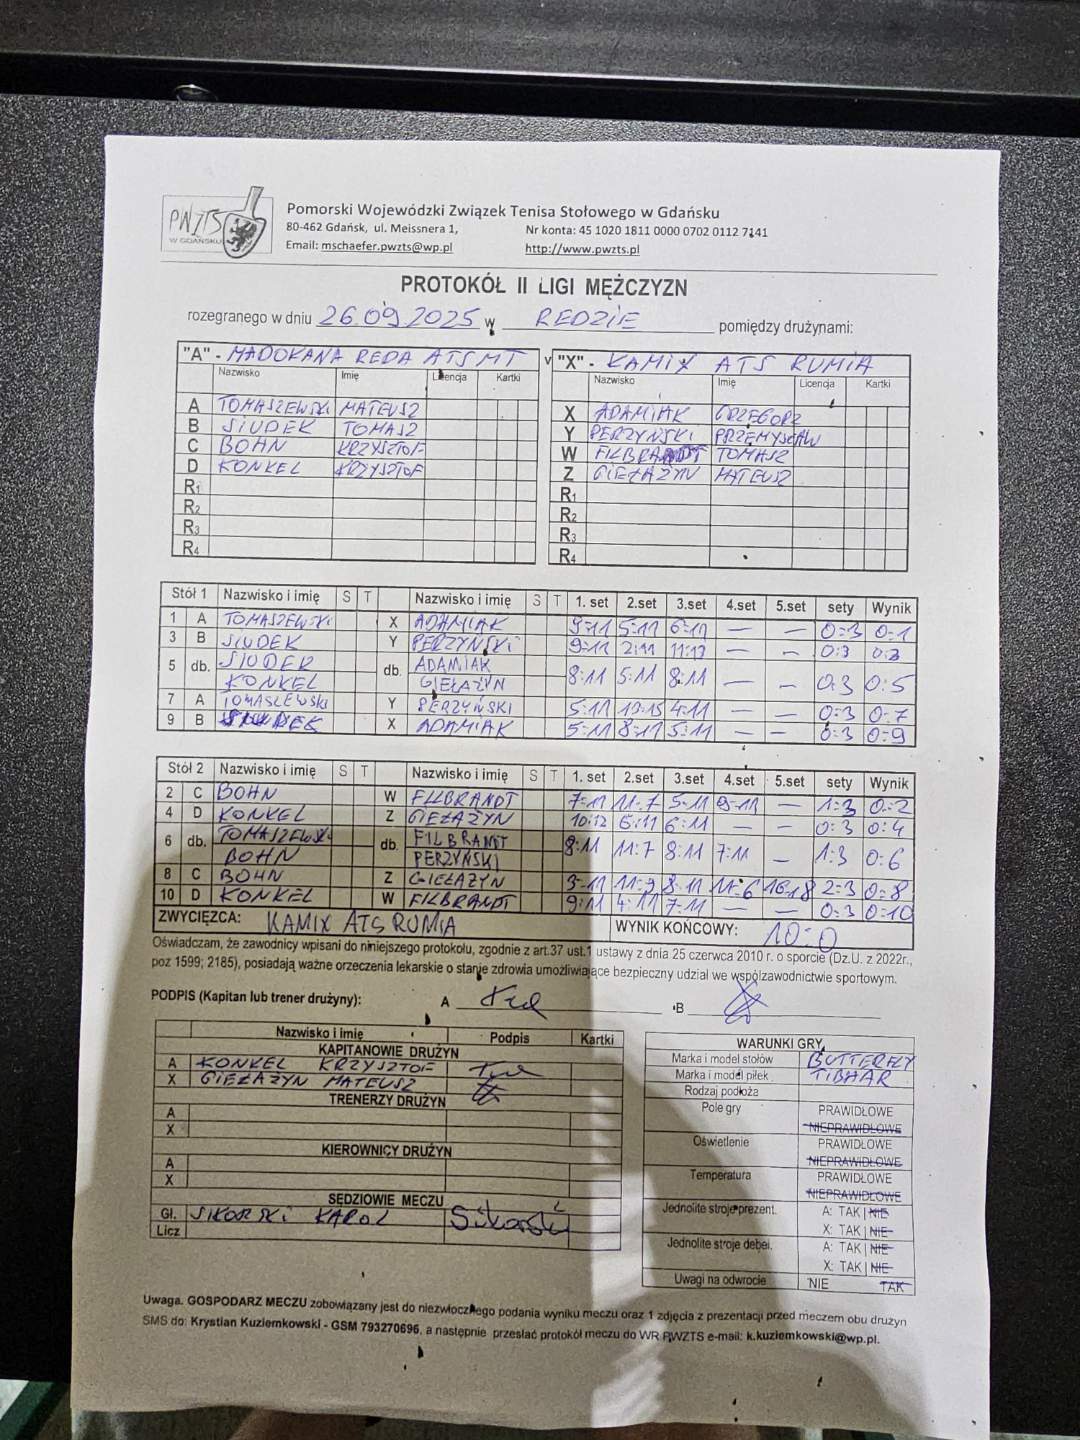 PWZTS
W GDAŃSKU
Pomorski Wojewódzki Związek Tenisa Stołowego w Gdańsku
80-462 Gdańsk, ul. Meissnera 1, Nr konta: 45 1020 1811 0000 0702 0112 7141
Email: mschaefer.pwzts@wp.pl http://www.pwzts.pl
PROTOKÓŁ II LIGI MĘŻCZYZN
rozegranego w dniu 26.09.2025 w REDZIE pomiędzy drużynami:
"A" - MADOKANA REDA ATSMT v "X" - KAMIX ATS RUMIA
Nazwisko Imię Licencja Kartki Nazwisko Imię Licencja Kartki
A TOMASZEWSKI MATEUSZ X ADAMIAK GRZEGORZ
B SIUDEK TOMASZ Y PERZYŃSKI PRZEMYSŁAW
C BOHN KRZYSZTOF W FILBRANDT TOMASZ
D KONKEL KRZYSZTOF Z GIEŁAŻYN MATEUSZ
R1 R1
R2 R2
R3 R3
R4 R4
Stół 1 Nazwisko i imię S T Nazwisko i imię S T 1. set 2.set 3.set 4.set 5.set sety Wynik
1 A TOMASZEWSKI X ADAMIAK 9:11 5:11 6:11 — — 0:3 0:1
3 B SIUDEK Y PERZYŃSKI 9:11 2:11 11:13 — — 0:3 0:3
5 db. SIUDEK db. ADAMIAK 8:11 5:11 8:11 — — 0:3 0:5
KONKEL GIEŁAŻYN
7 A TOMASZEWSKI Y PERZYŃSKI 5:11 13:15 4:11 — — 0:3 0:7
9 B SIUDEK X ADAMIAK 5:11 8:11 5:11 — — 0:3 0:9
Stół 2 Nazwisko i imię S T Nazwisko i imię S T 1. set 2.set 3.set 4.set 5.set sety Wynik
2 C BOHN W FILBRANDT 7:11 11:7 5:11 9:11 — 1:3 0:2
4 D KONKEL Z GIEŁAŻYN 10:12 6:11 6:11 — — 0:3 0:4
6 db. TOMASZEWSKI db. FILBRANDT 8:11 11:7 8:11 7:11 — 1:3 0:6
BOHN PERZYŃSKI
8 C BOHN Z GIEŁAŻYN 3:11 11:9 8:11 11:6 16:18 2:3 0:8
10 D KONKEL W FILBRANDT 9:11 4:11 7:11 — — 0:3 0:10
ZWYCIĘZCA: KAMIX ATS RUMIA WYNIK KOŃCOWY: 10:0
Oświadczam, że zawodnicy wpisani do niniejszego protokołu, zgodnie z art.37 ust.1 ustawy z dnia 25 czerwca 2010 r. o sporcie (Dz.U. z 2022r.,
poz 1599; 2185), posiadają ważne orzeczenia lekarskie o stanie zdrowia umożliwiające bezpieczny udział we współzawodnictwie sportowym.
PODPIS (Kapitan lub trener drużyny): A B
Nazwisko i imię Podpis Kartki
KAPITANOWIE DRUŻYN
A KONKEL KRZYSZTOF
X GIEŁAŻYN MATEUSZ
TRENERZY DRUŻYN
A
X
KIEROWNICY DRUŻYN
A
X
SĘDZIOWIE MECZU
Gł. SIKORSKI KAROL Sikorski
Licz
WARUNKI GRY
Marka i model stołów BUTTERFLY
Marka i model piłek TIBHAR
Rodzaj podłoża
Pole gry PRAWIDŁOWE
NIEPRAWIDŁOWE
Oświetlenie PRAWIDŁOWE
NIEPRAWIDŁOWE
Temperatura PRAWIDŁOWE
NIEPRAWIDŁOWE
Jednolite stroje prezent. A: TAK | NIE
X: TAK | NIE
Jednolite stroje debel. A: TAK | NIE
X: TAK | NIE
Uwagi na odwrocie NIE TAK
Uwaga. GOSPODARZ MECZU zobowiązany jest do niezwłocznego podania wyniku meczu oraz 1 zdjęcia z prezentacji przed meczem obu drużyn
SMS do: Krystian Kuziemkowski - GSM 793270696, a następnie przesłać protokół meczu do WR PWZTS e-mail: k.kuziemkowski@wp.pl.